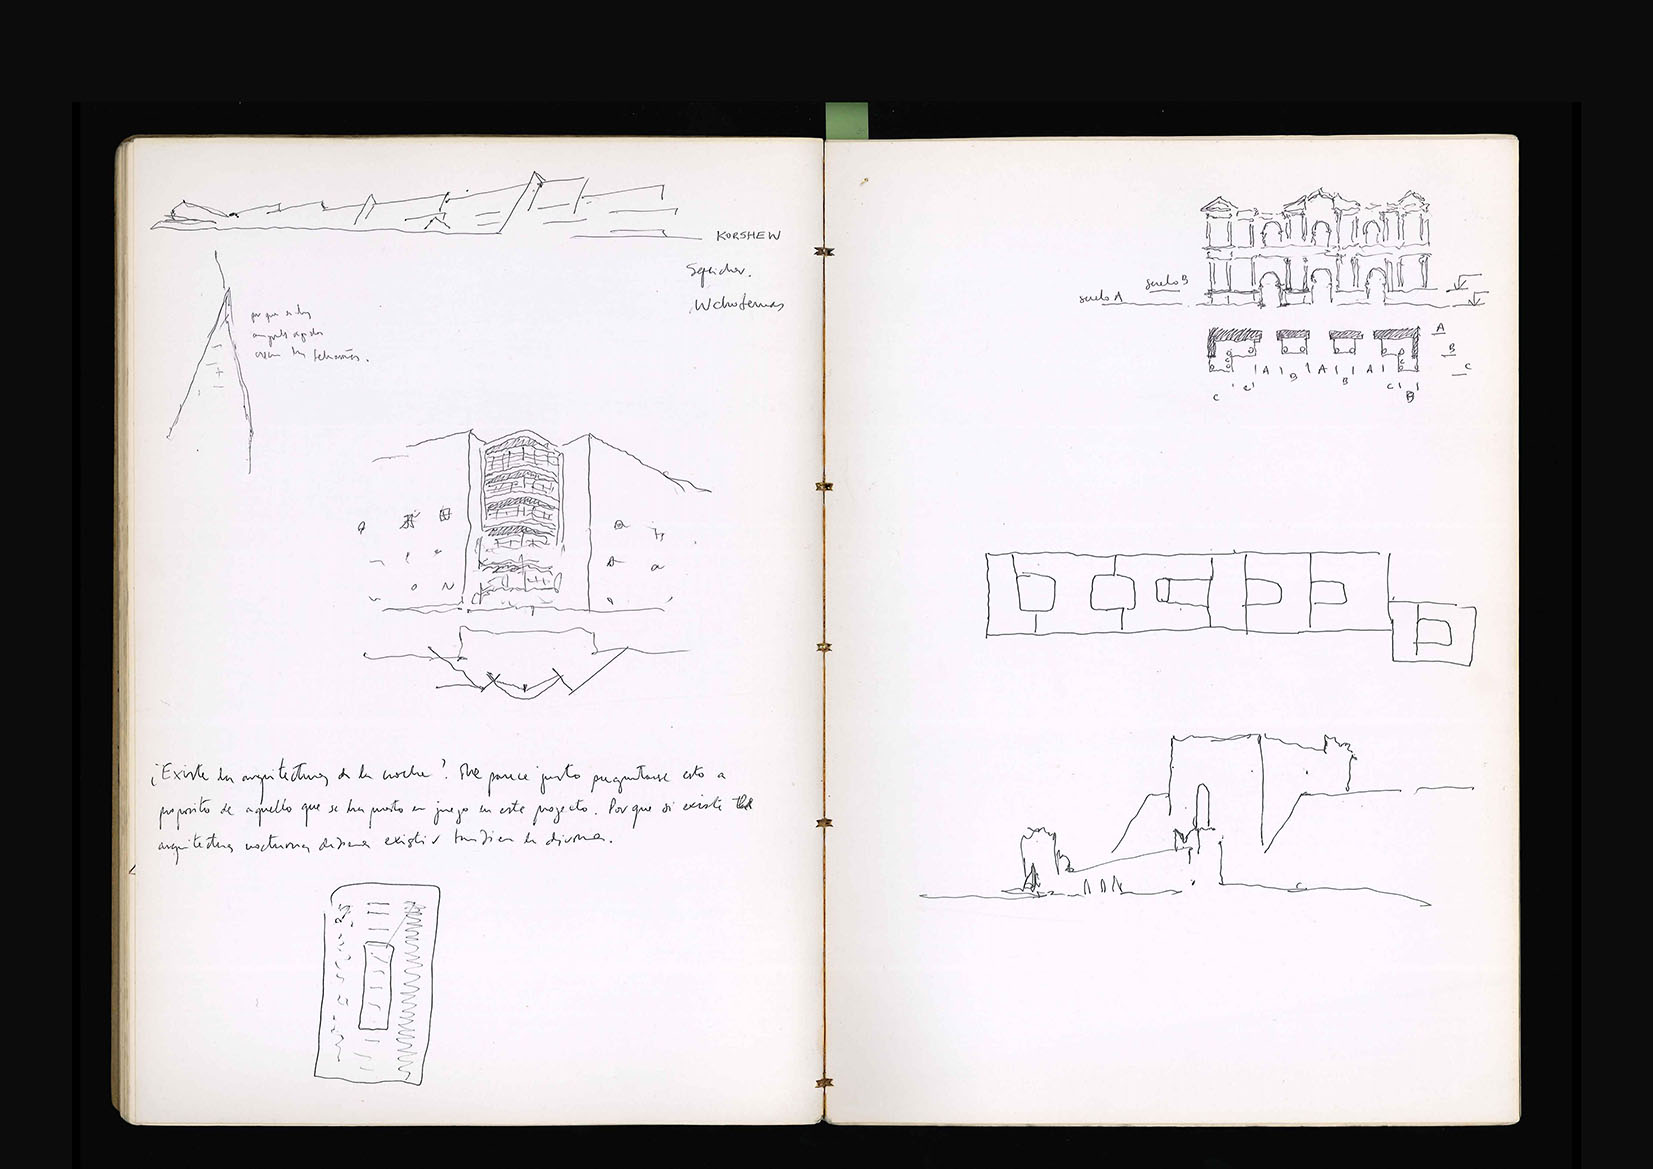 KORSHEW
Speicher.
por que si los
angulos agudos
crean las telarañas.
¿Existe la arquitectura de la noche? Me parece justo preguntarse esto a
proposito de aquello que se ha puesto en juego en este proyecto. Por que si existe la
arquitectura nocturna debiera existir tambien la diurna.
suelo B
suelo A
A
B
C
A B A B A
C C B
C